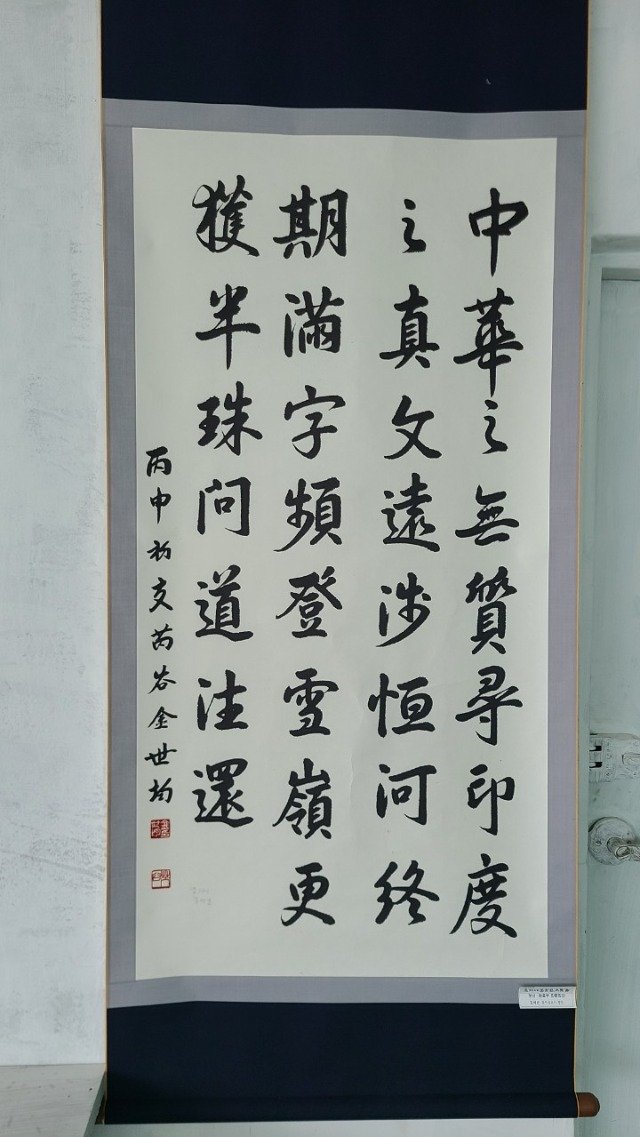 中華之無質尋印度
之真文遠涉恒河終
期滿字頻登雪嶺更
獲半珠問道往還
丙申初夏芮谷金世均